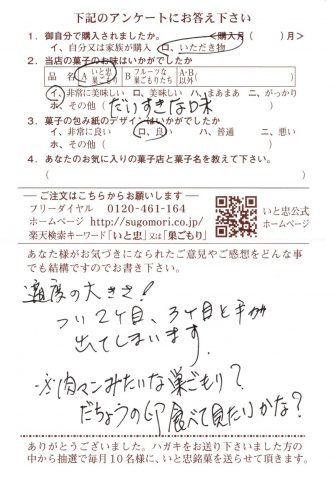 下記のアンケートにお答え下さい
1. 御自分で購入されましたか。 <購入月( )月>
イ、自分又は家族が購入 ロ、いただき物
2. 当店の菓子のお味はいかがでしたか
品名 A いと忠巣ごもり B フルーツな巣ごもりたち A・B以外( )
イ、非常に美味しい ロ、美味しい ハ、まあまあ ニ、がっかり
ホ、その他( だいすきな味 )
3. 菓子の包み紙のデザインはいかがでしたか
イ、非常に良い ロ、良い ハ、普通 ニ、悪い
ホ、その他( )
4. あなたのお気に入りの菓子店と菓子名を教えて下さい。
( )
ご注文はこちらからお願いします
フリーダイヤル 0120-461-164
ホームページ http://sugomori.co.jp/
楽天検索キーワード「いと忠」又は「巣ごもり」
いと忠公式
ホームページ
あなた様がお気づきになられたご意見やご感想をどんな事
でも結構ですのでお書き下さい。
適度の大きさ!
つい2ケ目、3ケ目と手が
出てしまいます。
肉マンみたいな巣ごもり?
だちょうの卵 食べて見たいかな?
ありがとうございました。ハガキをお送り下さいました方の
中から抽選で毎月10名様に、いと忠銘菓を送らせて頂きます。